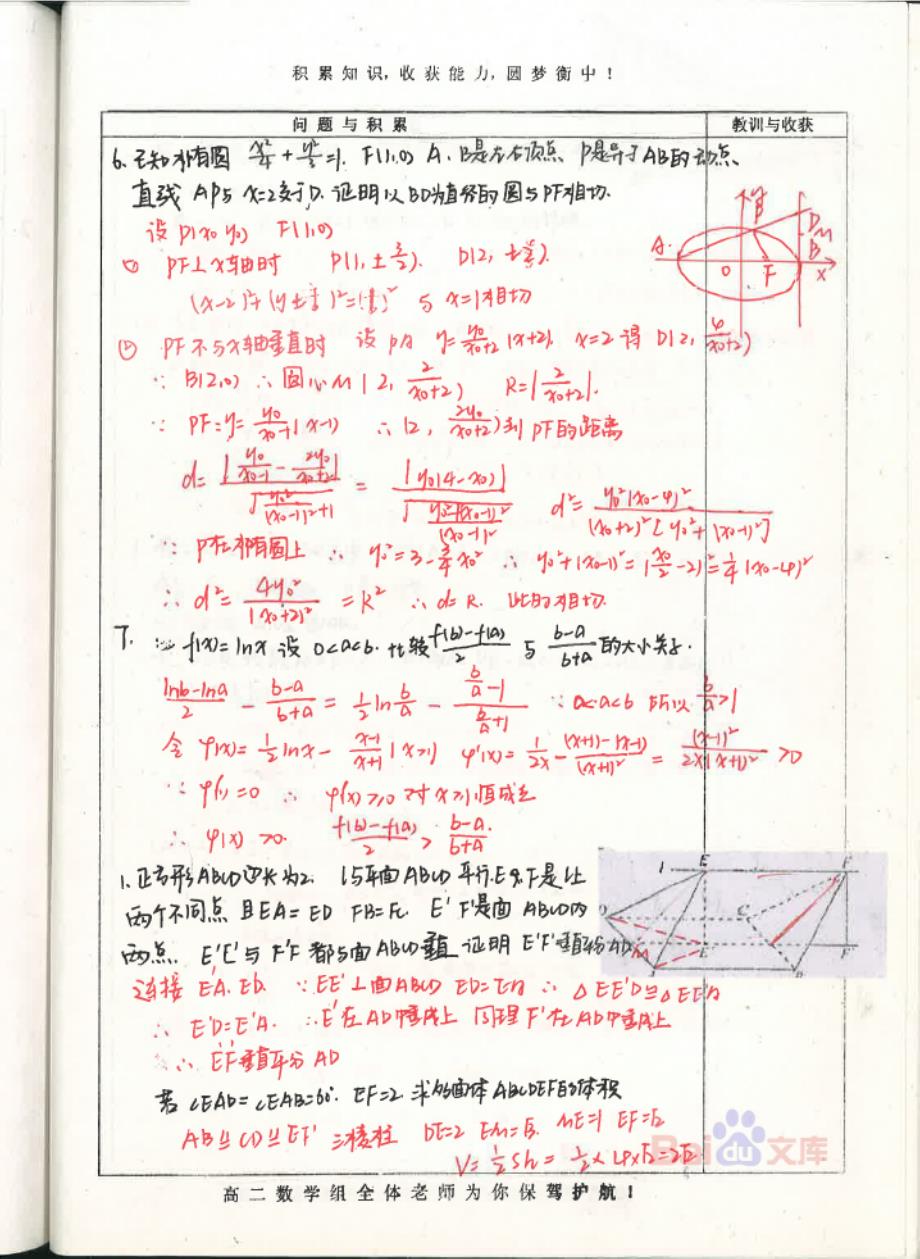 积累知识,收获能力,圆梦衡中!
问题与积累 教训与收获
6.已知椭圆 x²/4 + y²/3 =1. F(1,0) A、B是左右顶点、P是异于AB的动点、
直线 AP与 x=2交于D. 证明以BD为直径的圆与PF相切.
设 P(x0 y0) F(1,0)
① PF⊥x轴时 P(1,±3/2). D(2,
与 x=1相切
② PF不与x轴垂直时 设PA y= y0/(x0+2) (x+2), x=2得 D(2,
∵ B(2,0) ∴ 圆心M (2, 2/(x0+2)) R=|2/(x0+2)|.
∵ PF:y= y0/(x0-1) (x-1) ∴ (2, 2y0/(x0+2))到PF的距离
d= |y0/(x0-1) - 2y0/(x0+2)| / √(y0²/(x0-1)²+1) = |y0(4-x0)| / d²= y0²(x0-4)² / (x0+2)²[y0²+(x0-1)²]
∵ P在椭圆上 ∴ y0²=3-3/4 x0² ∴ y0²+(x0-1)²=(x0/2 -2)²=1/4 (x0-4)²
∴ d²= 4y0²/(x0+2)² =R² ∴ d=R. 此时相切.
7. f(x)=lnx 设 0<a<b. 比较 (f(b)-f(a))/2 与 (b-a)/(b+a) 的大小关系.
(lnb-lna)/2 - (b-a)/(b+a) = 1/2 ln b/a - (b/a -1)/(b/a +1) ∵ 0<a<b 所以 b/a >1
令 φ(x)= 1/2 lnx - (x-1)/(x+1) (x>1) φ'(x)= 1/2x - ((x+1)-(x-1))/(x+1)² = (x-1)²/2x(x+1)² >0
∵ φ(1)=0 ∴ φ(x)≥0 对x≥1恒成立
∴ φ(x) >0. (f(b)-f(a))/2 > (b-a)/(b+a).
1.正方形ABCD边长为2. l与平面ABCD平行.E和F是l上
两个不同点 且EA=ED FB=FC. E' F'是面ABCD内
两点 E'E与F'F都与面ABCD垂直 证明 E'F'垂直平分AD
连接 E'A. E'D. ∵ EE'⊥面ABCD ED=EA ∴ △EE'D≌△EE'A
∴ E'D=E'A. ∴E'在AD中垂线上 同理F'在AD中垂线上
∴ E'F'垂直平分AD
若 ∠EAD=∠EAB=60°. EF=2. 求多面体ABCDEF的体积
三棱柱 DE=2 ME'=1
V= 1/2 Sh = 1/2 ×
A. P D M B O F x y
l E F D C E' F' M B
Bai du 文库
高二数学组全体老师为你保驾护航!